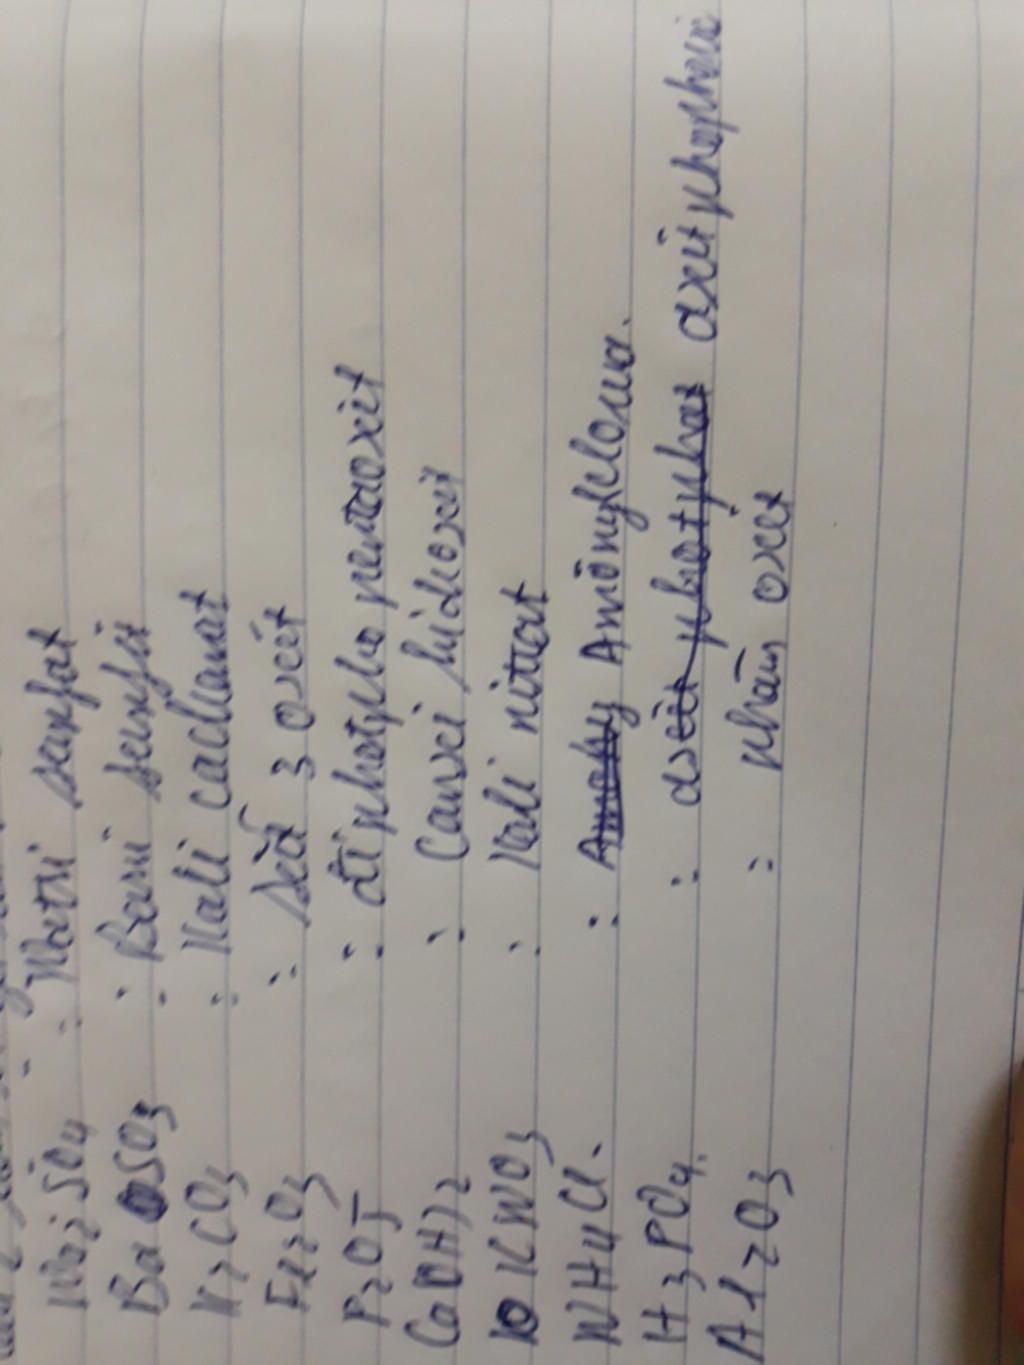 Na2SO4 : Natri sunfat
BaSO3 : Bari sunfit
K2CO3 : Kali cacbonat
Fe2O3 : Sắt 3 oxit
P2O5 : đi photpho pentaoxit
Ca(OH)2 : Canxi hidroxit
KNO3 : Kali nitrat
NH4Cl. : Amôny clorua.
H3PO4. : axit photphat axit phophoric
Al2O3 : nhôm oxit